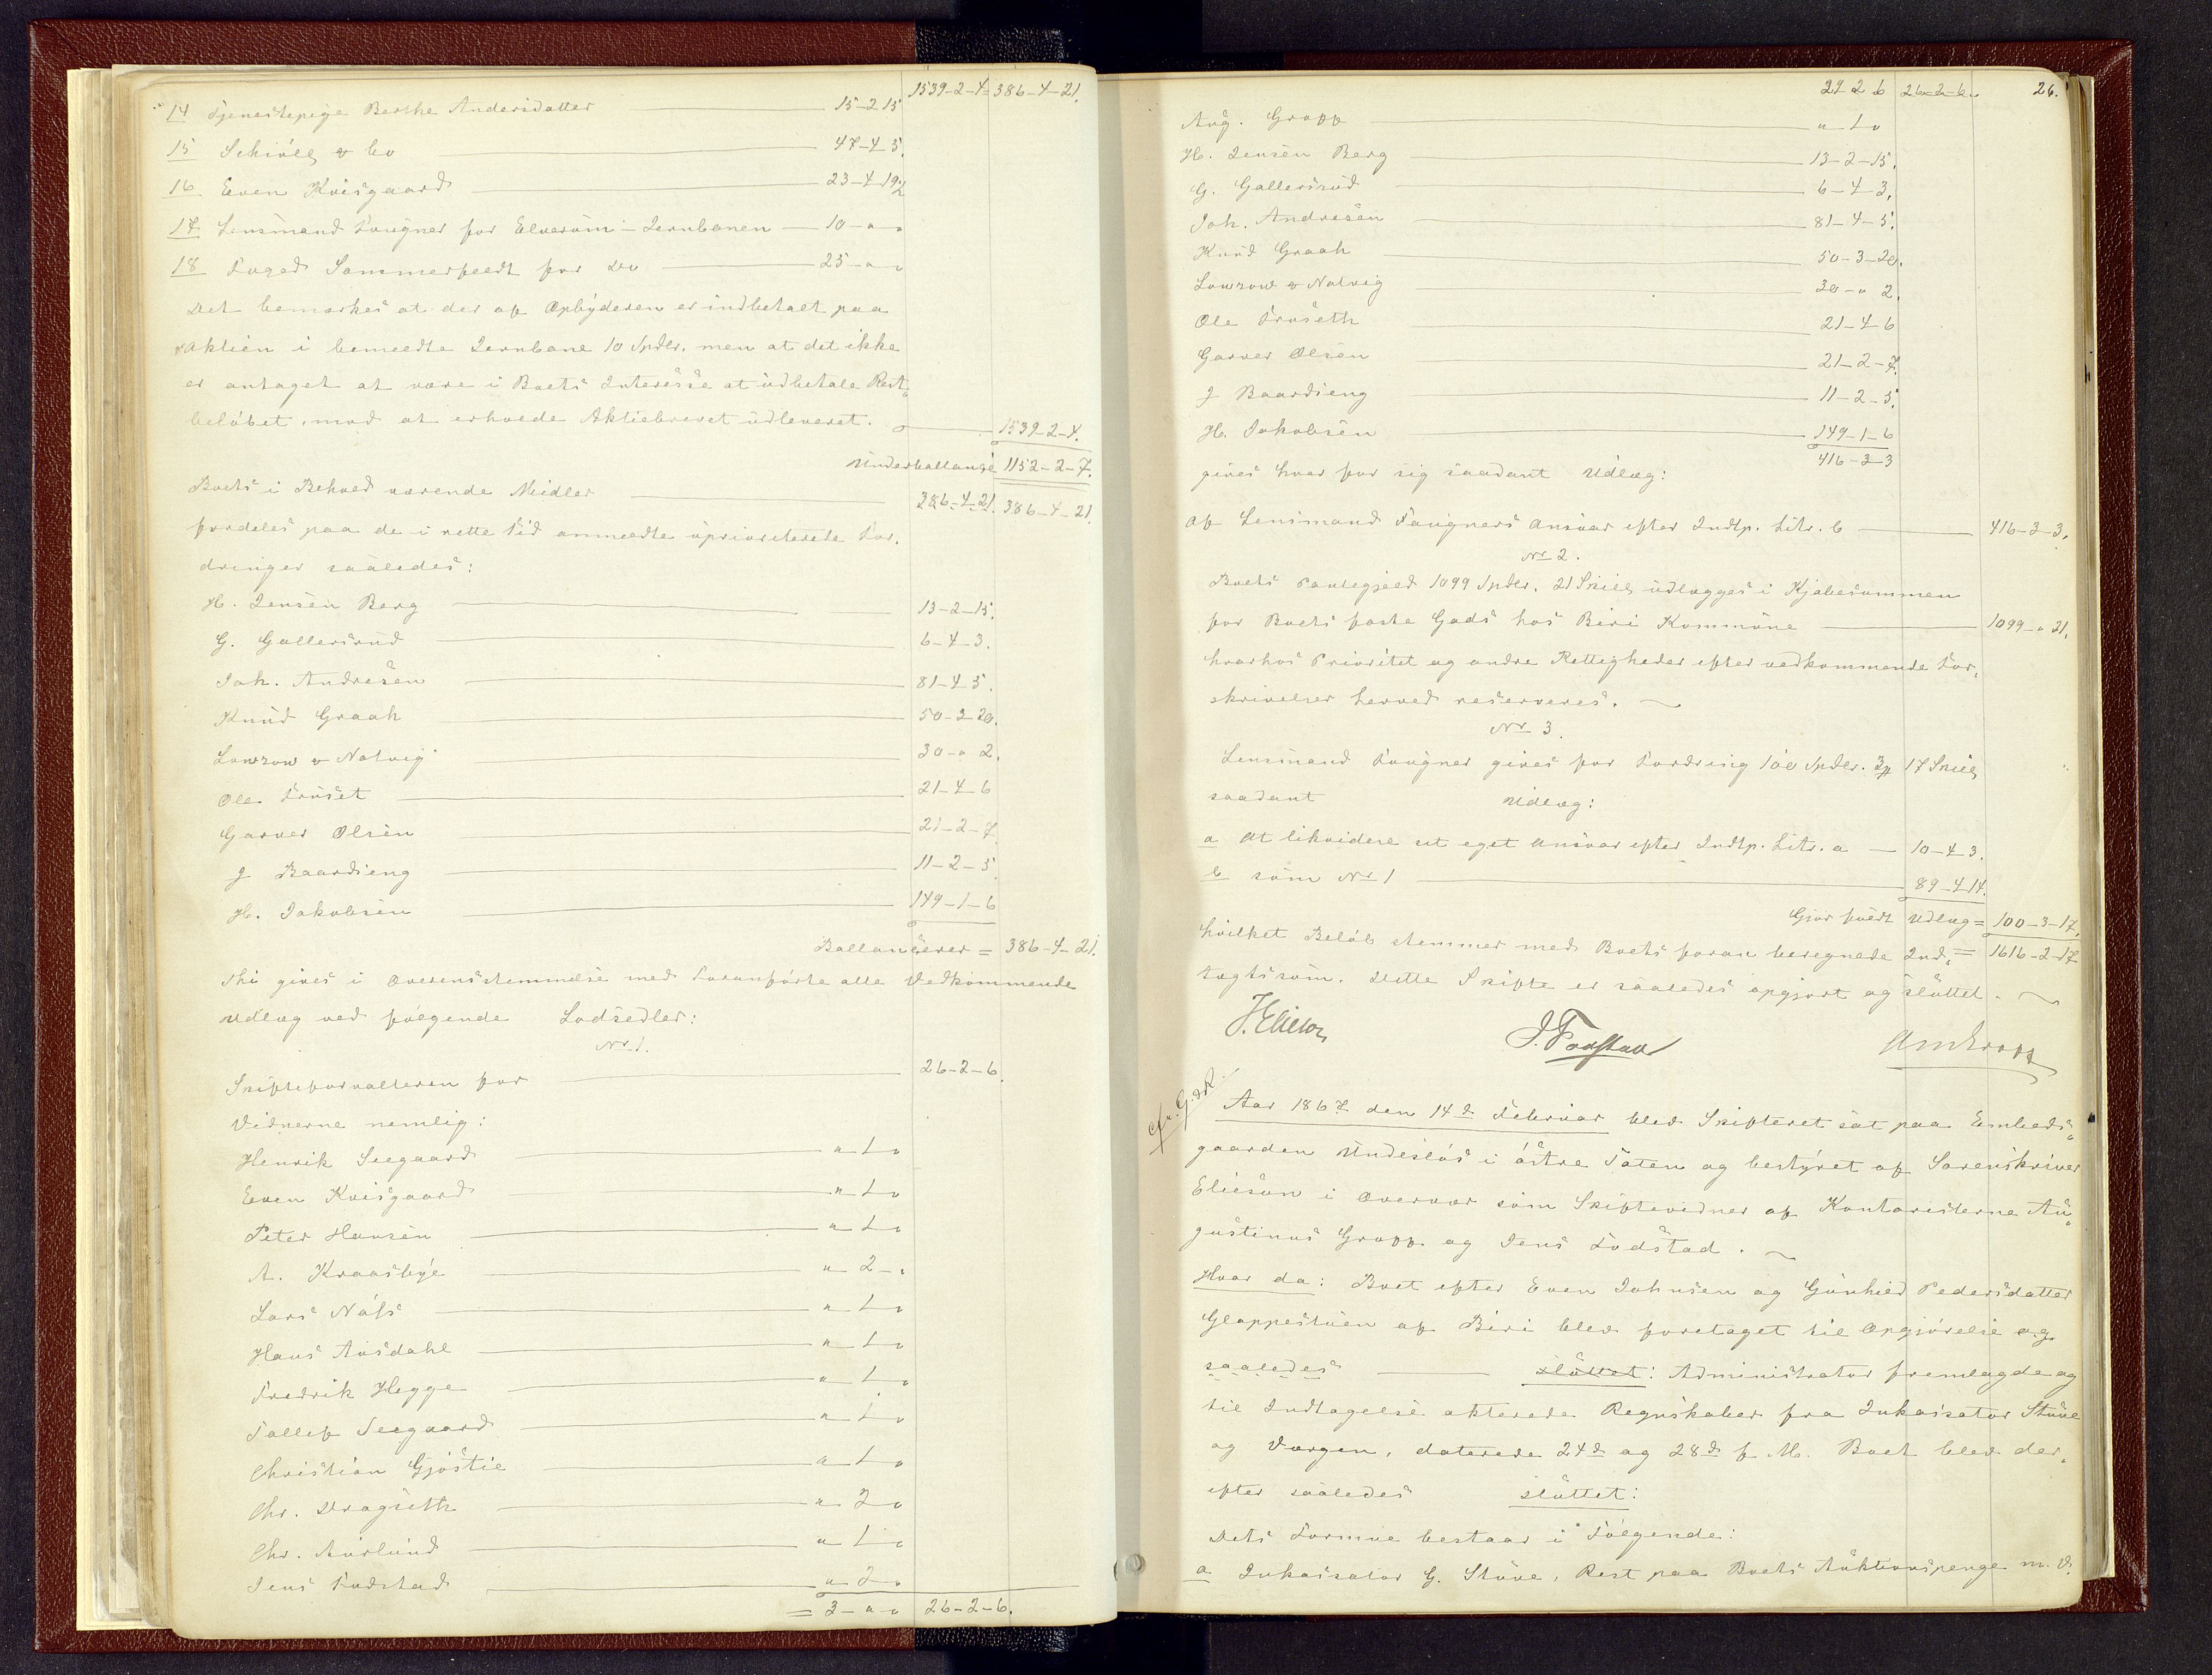 1539-2-4= 386-4-21.
14 Tjenestepige Berthe Andersdatter 15-2 15
15 Schiöll & Co 47-4 5.
16 Even Kvisgaard 23-4-19½
17 Lensmand Fougner for Elverum-Jernbanen 10-"-"
18 Foged Sommerfeldt for Do 25-"-"
Det bemærkes at der af Opbyderen er indbetalt paa
Aktien i bemeldte Jernbane 10 Spdlr. men at det ikke
er antaget at være i Boets Interesse at udbetale Rest-
beløbet, mod at erholde Aktiebrevet udleveret. 1539-2-4.
Underballance 1152-2-7.
Boets i Behold værende Midler 386-4-21. 386-4-21.
fordeles paa de i rette Tid anmeldte upriviterede For-
dringer saaledes:
H. Jensen Berg 13-2-15.
G. Gallersrud 6-4-3.
Joh. Andresen 81-4-5.
Knud Graah 50-3-20.
Lowzow & Natvig 30-" 2.
Ole Fruset 21-4-6
Garver Olsen 21-2-7
J Baardseng 11-2-5.
H. Jakobsen 149-1-6
Ballancerer = 386-4-21.
Thi gives i Overensstemmelse med Foranførte alle Vedkommende
Udlæg ved følgende Lodsedler:
No 1.
Skifteforvalteren for 26-2-6.
Vidnerne nemlig:
Henrik Seegaard "-1-"
Even Kvisgaard "-1-"
Peter Hansen "-1-"
A. Kraabye "-2-"
Lars Næss "-1-"
Hans Aasdahl "-1-"
Fredrik Hegge "-1-"
Tollef Seegaard "-1-"
Christian Gjöstie "-1-"
Chr. Dragseth "-2-"
Chr. Aurlund "-1-"
Jens Fodstad "-2-"
= 3-"-" 26-2-6.
29 2 6 26-2-6. 26.
Aug. Gropp "-1-"
H. Jensen Berg 13-2-15.
G. Gallersrud 6-4-3.
Joh. Andresen 81-4-5.
Knud Graah 50-3-20.
Lowzow & Natvig 30-" 2.
Ole Fruseth 21-4-6
Garver Olsen 21-2-7.
J Baardseng 11-2-5.
H. Jakobsen 149-1-6
416-3-3
gives hver for sig saadant Udlæg:
Af Lensmand Fougners Ansvar efter Indtp. Litr. b 416-3-3.
No 2.
Boets Pantegjeld 1099 Spdlr. 21 Skill udlægges i Kjøbesummen
for Boets faste Gods hos Biri Kommune 1099-"-21.
hvorhos Prioritet og andre Rettigheder efter vedkommende For-
skrivelser herved reserveres.
No 3.
Lensmand Fougner gives for Fordring 100 Spdlr. 3 17 Skill
saadant Udlæg:
a At likvidere sit eget Ansvar efter Indtp. Litr. a 10-4-3.
b som No 1 89-4 14.
Gjør fuldt Udlæg = 100-3-17.
hvilket Beløb stemmer med Boets foran beregnede Ind- = 1616-2-17
tægtssum. Dette Skifte er saaledes opgjort og sluttet.
J. Elieson J. Fodstad Aug Gropp
Aar 1867 den 14d Februar blev Skifteret sat paa Embeds-
gaarden Undeslös i østre Toten og bestyret af Sorenskriver
Elieson i Overvær som Skiftevidner af Kontoristerne Au-
gustinus Gropp og Jens Fodstad.
Hvor da: Boet efter Even Johnsen og Gunhild Pedersdatter
Gloppestuen af Biri blev foretaget til Opgjørelse og
saaledes sluttet: Administrator fremlagde og
til Indtagelse akterede Regnskaber fra Inkassator Stüve
og Vergen, daterede 24d og 28d f. M. Boet blev der-
efter saaledes sluttet:
Dets Formue bestaar i Følgende:
a Inkassator G. Stüve, Rest paa Boets Auktionspenge m. V.